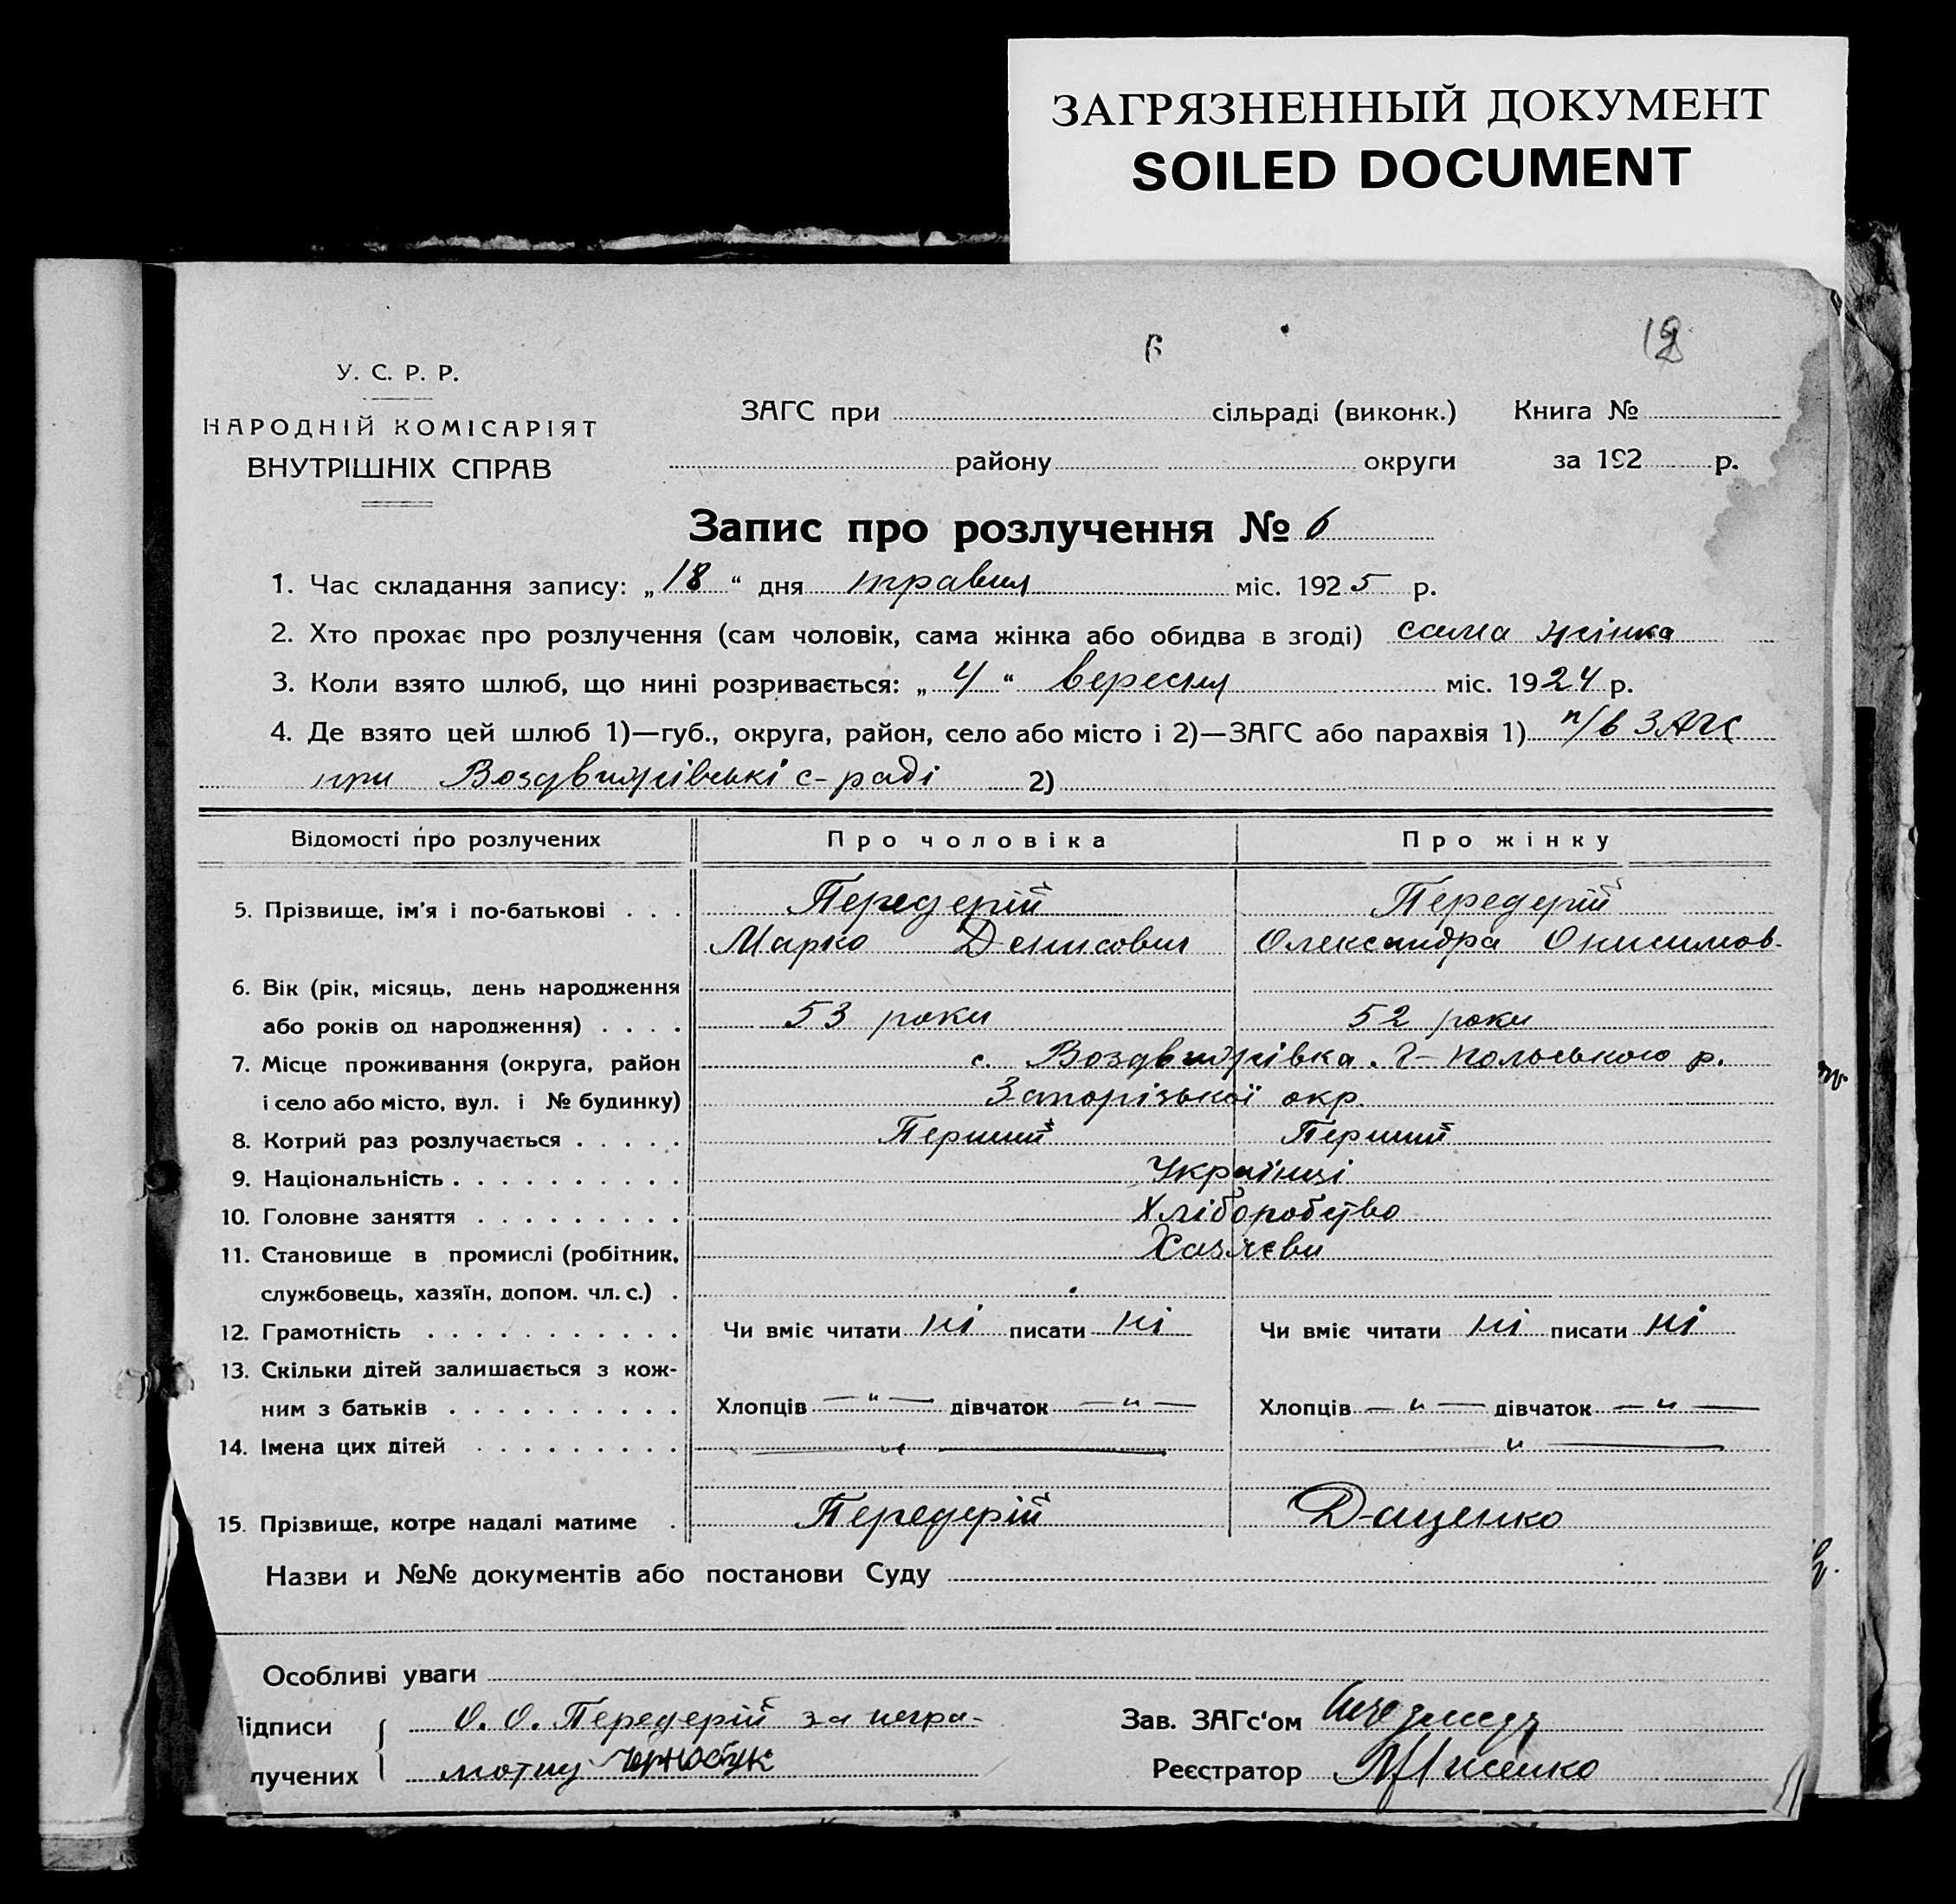 ЗАГРЯЗНЕННЫЙ ДОКУМЕНТ
SOILED DOCUMENT
У. С. Р. Р.
НАРОДНІЙ КОМІСАРІЯТ
ВНУТРІШНІХ СПРАВ
ЗАГС при сільраді (виконк.) Книга №
району округи за 192 р.
Запис про розлучення № 6
1. Час складання запису: „18“ дня травня міс. 1925 р.
2. Хто прохає про розлучення (сам чоловік, сама жінка або обидва в згоді) сама жінка
3. Коли взято шлюб, що нині розривається: „4“ вересня міс. 1924 р.
4. Де взято цей шлюб 1)—губ., округа, район, село або місто і 2)—ЗАГС або парахвія 1) п/в ЗАГС
при Воздвижівські с-раді 2)
Відомості про розлучених Про чоловіка Про жінку
5. Прізвище, ім'я і по-батькові . . . Передерій Передерій
Марко Денисович Олександра Онисимов-
6. Вік (рік, місяць, день народження
або років од народження) . . . . 53 роки 52 роки
7. Місце проживання (округа, район с. Воздвижівка. Г-Польського р.
і село або місто, вул. і № будинку) Запорізької окр.
8. Котрий раз розлучається . . . . . Перший Перший
9. Національність . . . . . . . . . . Українці
10. Головне заняття . . . . . . . . . Хліборобство
11. Становище в промислі (робітник, Хазяєви
службовець, хазяїн, допом. чл. с.) .
12. Грамотність . . . . . . . . . . . Чи вміє читати ні писати ні Чи вміє читати ні писати ні
13. Скільки дітей залишається з кож-
ним з батьків . . . . . . . . . . Хлопців — " — дівчаток — " — Хлопців — " — дівчаток — " —
14. Імена цих дітей . . . . . . . . . — " — — " —
15. Прізвище, котре надалі матиме . Передерій Даценко
Назви и №№ документів або постанови Суду
Особливі уваги
ідписи О. О. Передерій за негра- Зав. ЗАГс'ом
лучених мотну Чорнобук Реєстратор Лисенко